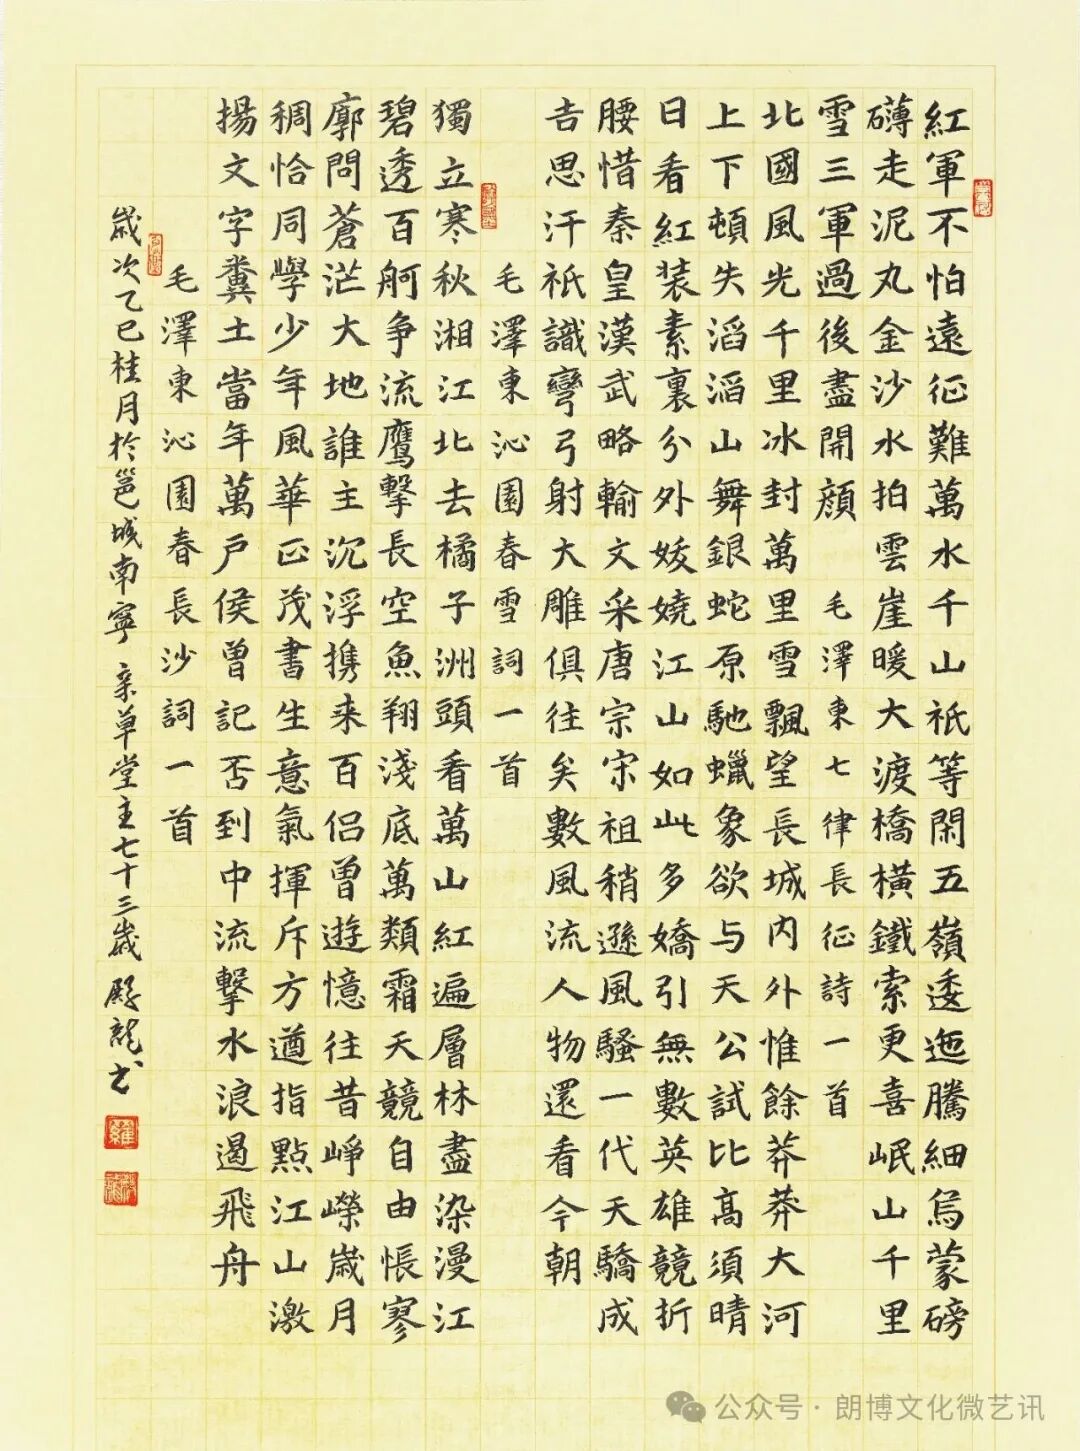 紅軍不怕遠征難萬水千山祇等閑五嶺逶迤騰細烏蒙磅
礴走泥丸金沙水拍雲崖暖大渡橋橫鐵索更喜岷山千里
雪三軍過後盡開顔 毛澤東七律長征詩一首
北國風光千里冰封萬里雪飄望長城内外惟餘莽莽大河
上下頓失滔滔山舞銀蛇原馳蠟象欲与天公試比高須晴
日看紅装素裏分外妖嬈江山如此多嬌引無數英雄競折
腰惜秦皇漢武略輸文采唐宗宋祖稍遜風騷一代天驕成
吉思汗祇識彎弓射大雕俱往矣數風流人物還看今朝
毛澤東沁園春雪詞一首
獨立寒秋湘江北去橘子洲頭看萬山紅遍層林盡染漫江
碧透百舸争流鹰擊長空魚翔淺底萬類霜天競自由悵寥
廓問蒼茫大地誰主沉浮携来百侣曾遊憶往昔崢嶸歲月
稠恰同學少年風華正茂書生意氣揮斥方遒指點江山激
揚文字糞土當年萬戶侯曾記否到中流擊水浪遏飛舟
毛澤東沁園春長沙詞一首
歲次乙巳桂月於邕城南寧 亲草堂主七十三歲 殿龍书
公众号 · 朗博文化微艺讯